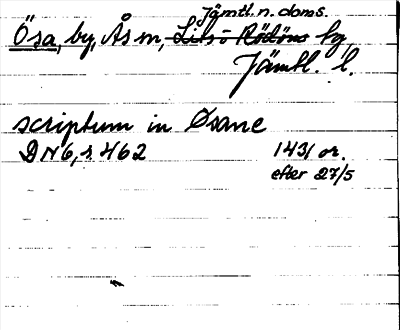 Jämtl. n. doms.
Ösa, by, Ås sn, Lits o Rödöns hg
Jämtl. l.
scriptum in Øsane
DN 6, s 462 1431 or.
efter 27/5